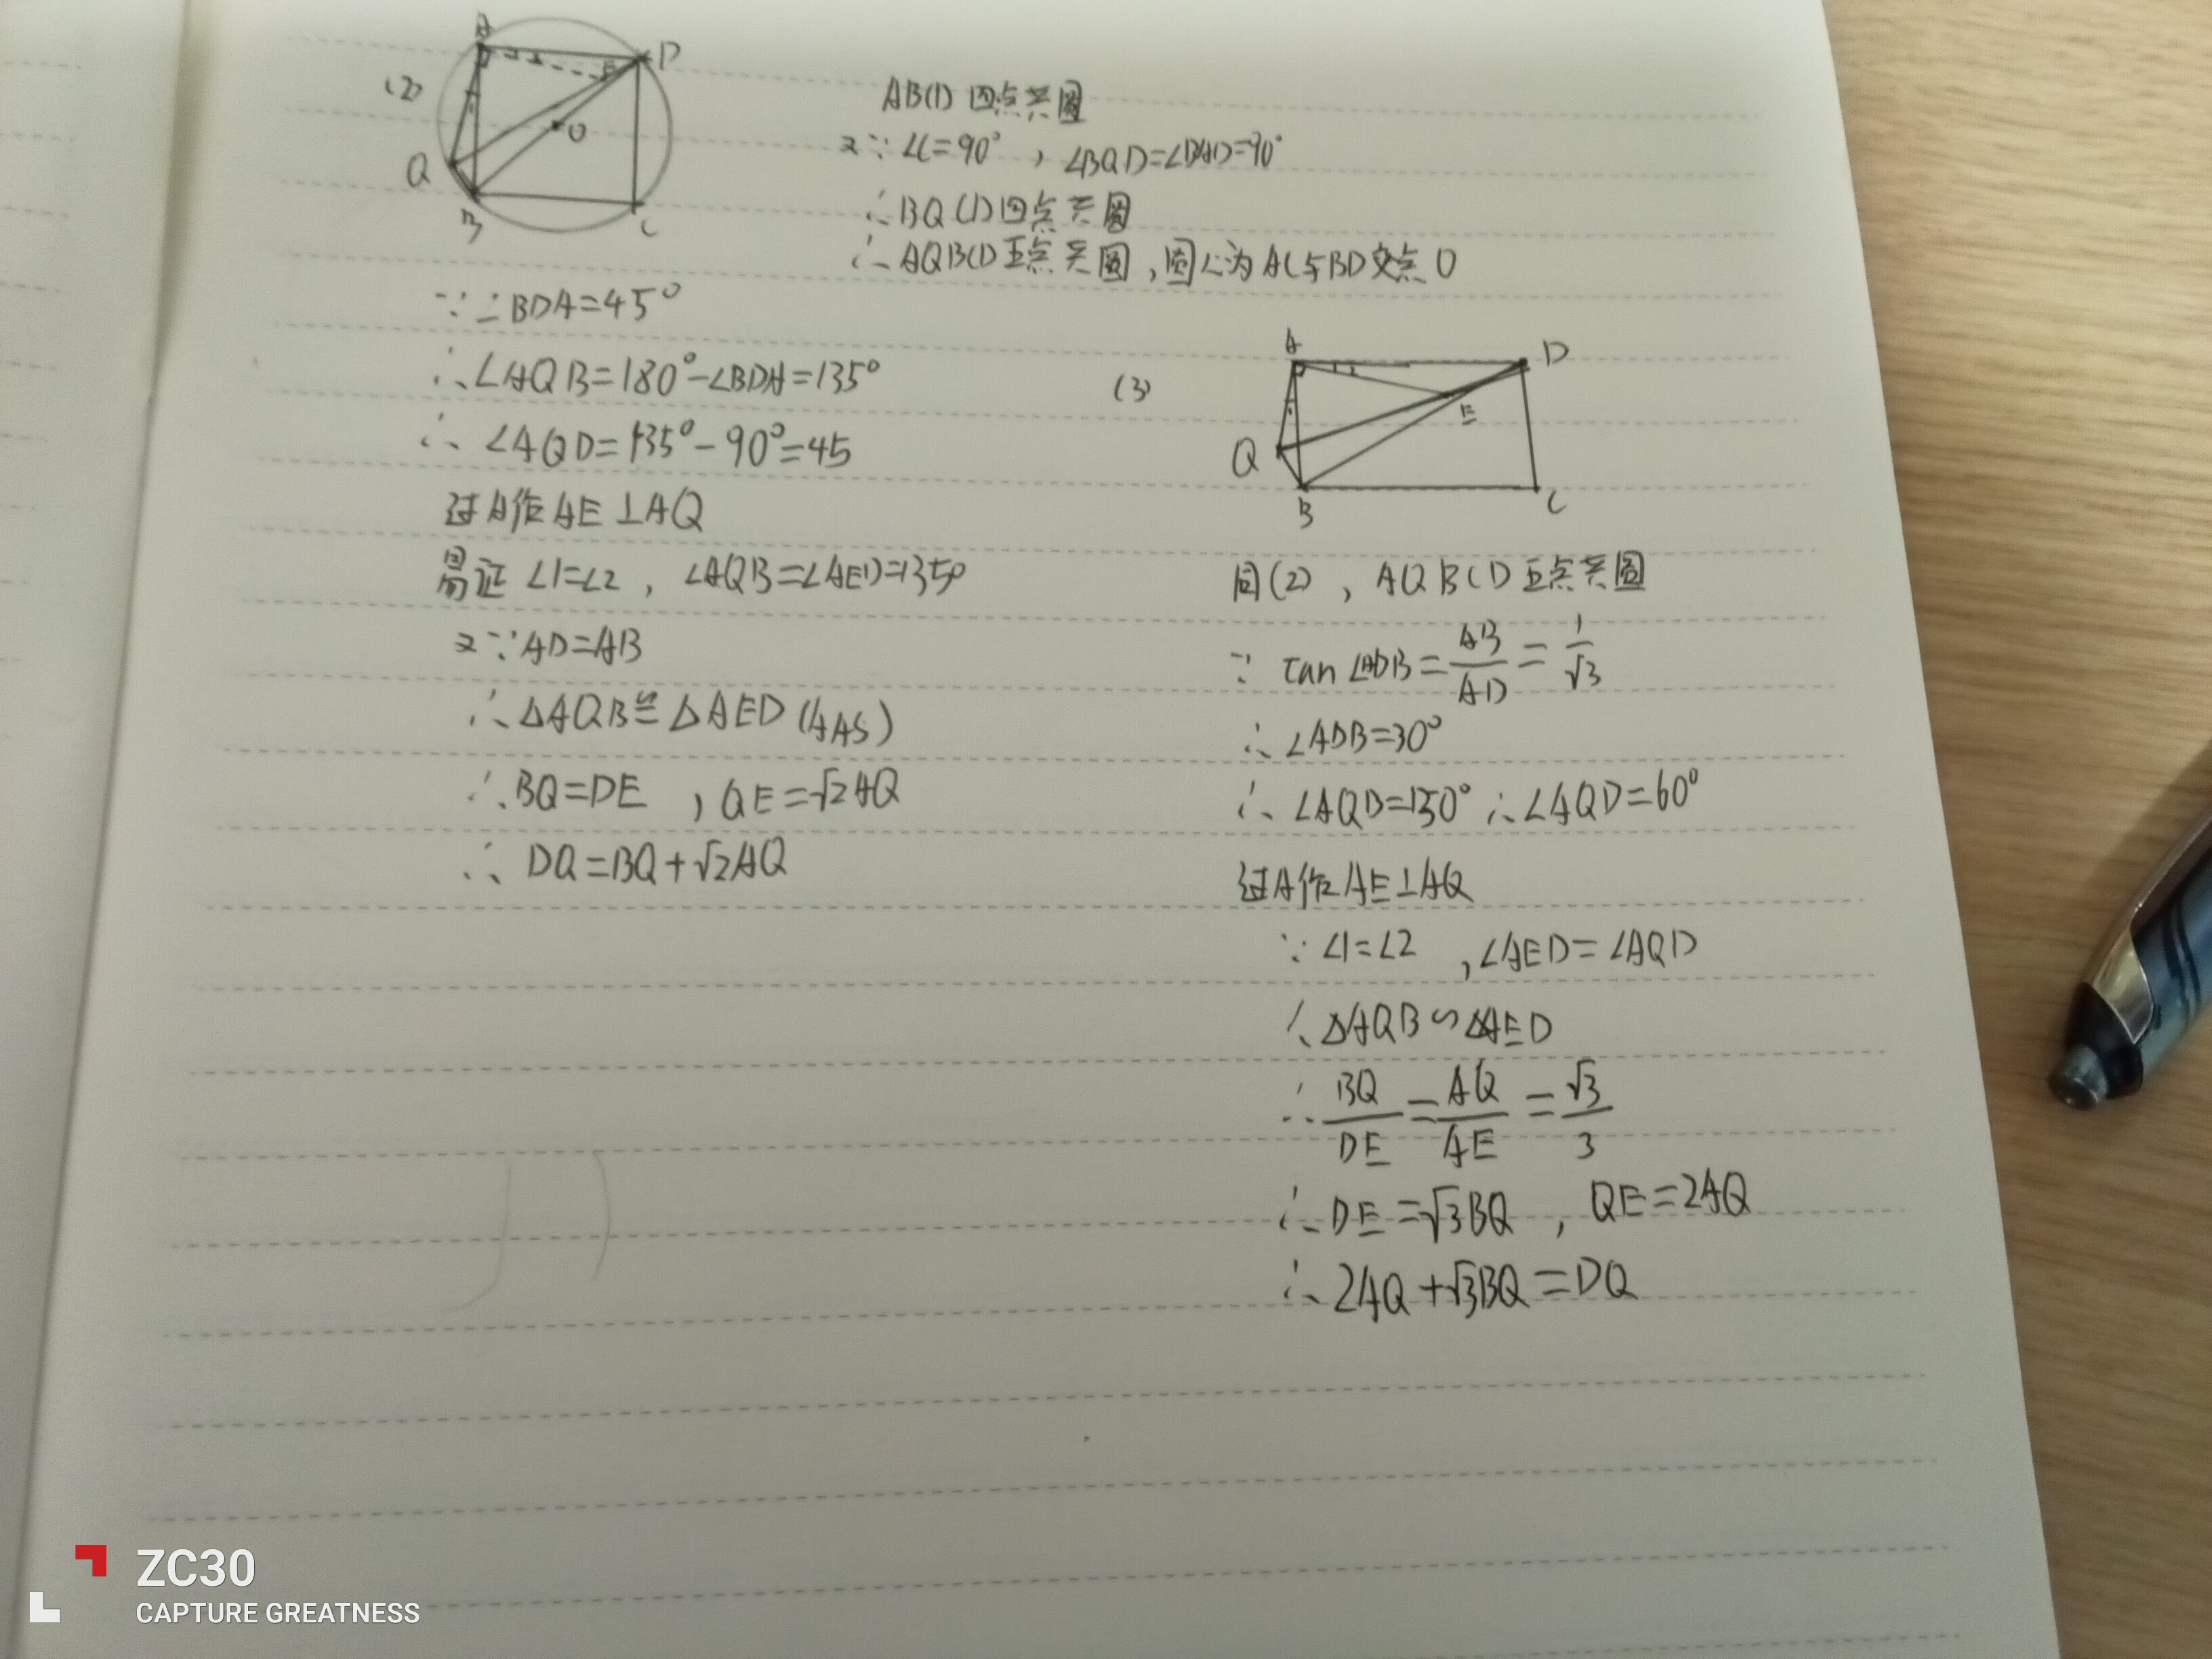 (2)
A
D
E
O
Q
B
C
1
2
ABCD四点共圆
又∵∠C=90°，∠BQD=∠BAD=90°
∴BQCD四点共圆
∴AQBCD五点共圆，圆心为AC与BD交点O
∵∠BDA=45°
∴∠AQB=180°-∠BDA=135°
∴∠AQD=135°-90°=45
过A作AE⊥AQ
易证∠1=∠2，∠AQB=∠AED=135°
又∵AD=AB
∴△AQB≌△AED(AAS)
∴BQ=DE，QE=√2AQ
∴DQ=BQ+√2AQ
(3)
A
D
E
Q
B
C
1
2
同(2)，AQBCD五点共圆
∵tan∠ADB=AB/AD=1/√3
∴∠ADB=30°
∴∠AQB=150°∴∠AQD=60°
过A作AE⊥AQ
∵∠1=∠2，∠AED=∠AQD
∴△AQB∽△AED
∴BQ/DE=AQ/AE=√3/3
∴DE=√3BQ，QE=2AQ
∴2AQ+√3BQ=DQ
ZC30
CAPTURE GREATNESS